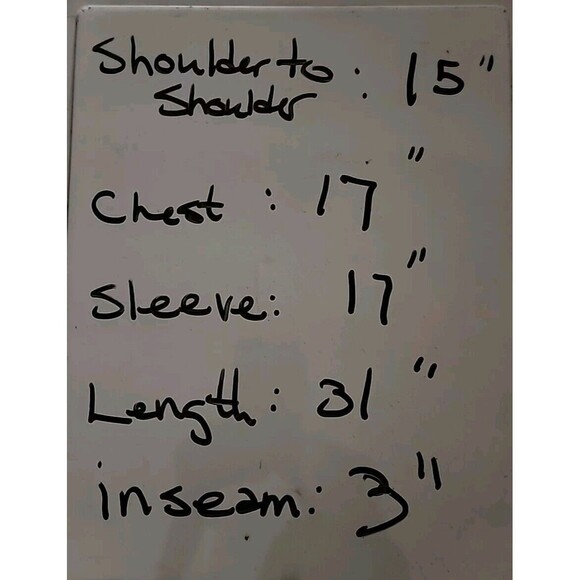 Shoulder to : 15"
Shoulder
Chest : 17"
Sleeve: 17"
Length: 31"
inseam: 3"